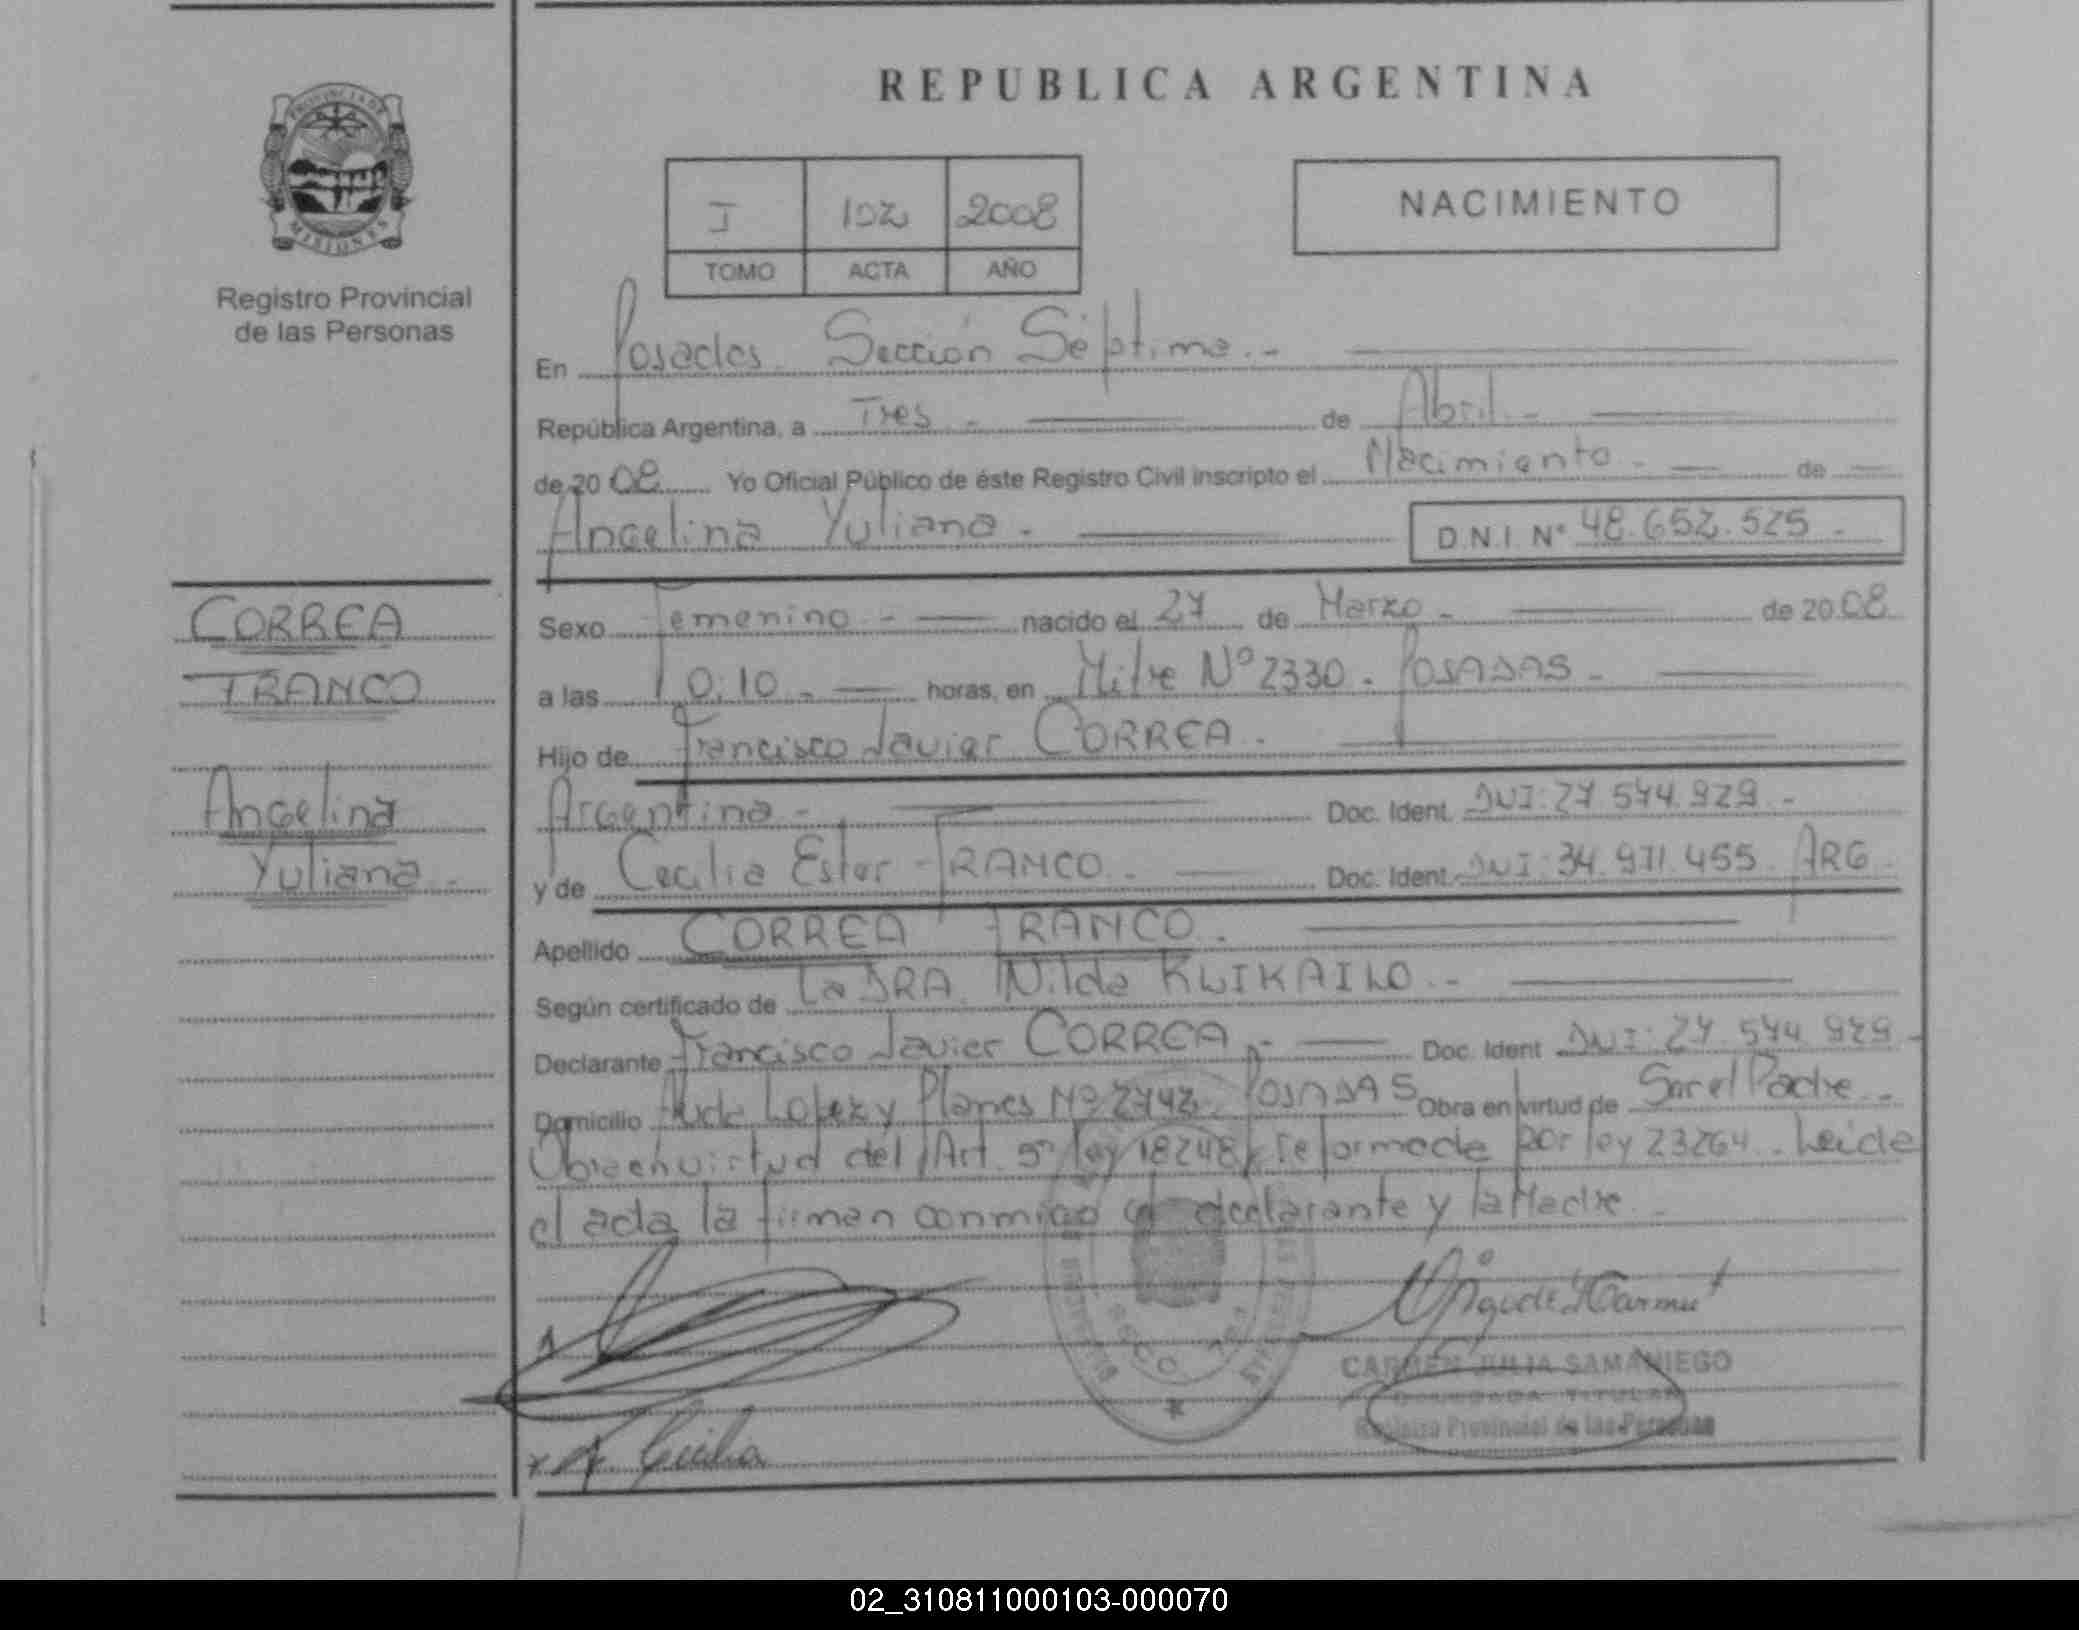 REPUBLICA ARGENTINA
PROVINCIA DE
MISIONES
Registro Provincial
de las Personas
I 102 2008
TOMO ACTA AÑO
NACIMIENTO
En Posadas Sección Séptima.-
República Argentina, a Tres - de Abril -
de 2008 Yo Oficial Público de éste Registro Civil inscripto el Nacimiento - de
Angelina Yuliana - D.N.I. Nº 48.652.525 -
CORREA
FRANCO
Angelina
Yuliana -
Sexo Femenino - nacido el 27 de Marzo - de 2008
a las 10:10 - horas, en Mitre Nº 2330 - POSADAS -
Hijo de Francisco Javier CORREA -
Argentina - Doc. Ident. DNI: 27.544.929 -
y de Cecilia Ester FRANCO - Doc. Ident. DNI: 34.971.455 ARG
Apellido CORREA FRANCO -
Según certificado de La DRA. Nilda
Declarante Francisco Javier CORREA - Doc. Ident DNI: 27.544.929 -
Domicilio Avda Lopez y Planes Nº 2742 POSADAS Obra en virtud de Ser el Padre -
Obra en virtud del Art. 5º ley 18248 reformada por ley 23264 - Leida
el acta la firman conmigo el declarante y la Madre -
CARMEN JULIA SAMANIEGO
DELEGADA TITULAR
Registro Provincial de las Personas
Cecilia
02_310811000103-000070